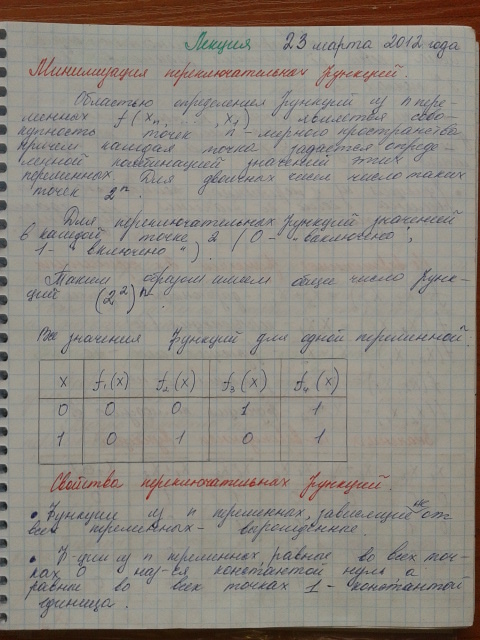 Лекция 23 марта 2012 года
Минимизация переключательных функций.
Областью определения функций из n пере-
менных f(xn, ..., x1) является сово-
купность точек n-мерного пространства
причем каждая точка задается опреде-
ленной комбинацией значений этих
переменных. Для двоичных чисел число таких
точек 2ⁿ
Для переключательных функций значений
в каждой точке 2 (0 - "выключено",
1 - "включено").
Таким образом имеем общее число функ-
ций (2²)ⁿ.
Все значения функций для одной переменной:
x f₁(x) f₂(x) f₃(x) f₄(x)
0 0 0 1 1
1 0 1 0 1
Свойства переключательных функций.
• Функции из n переменных, зависящий не от
всех переменных - вырожденные
• Ф-ции из n переменных равных во всех точ-
ках 0 наз-ся константой нуль а
равны во всех точках 1 - константой
единица.